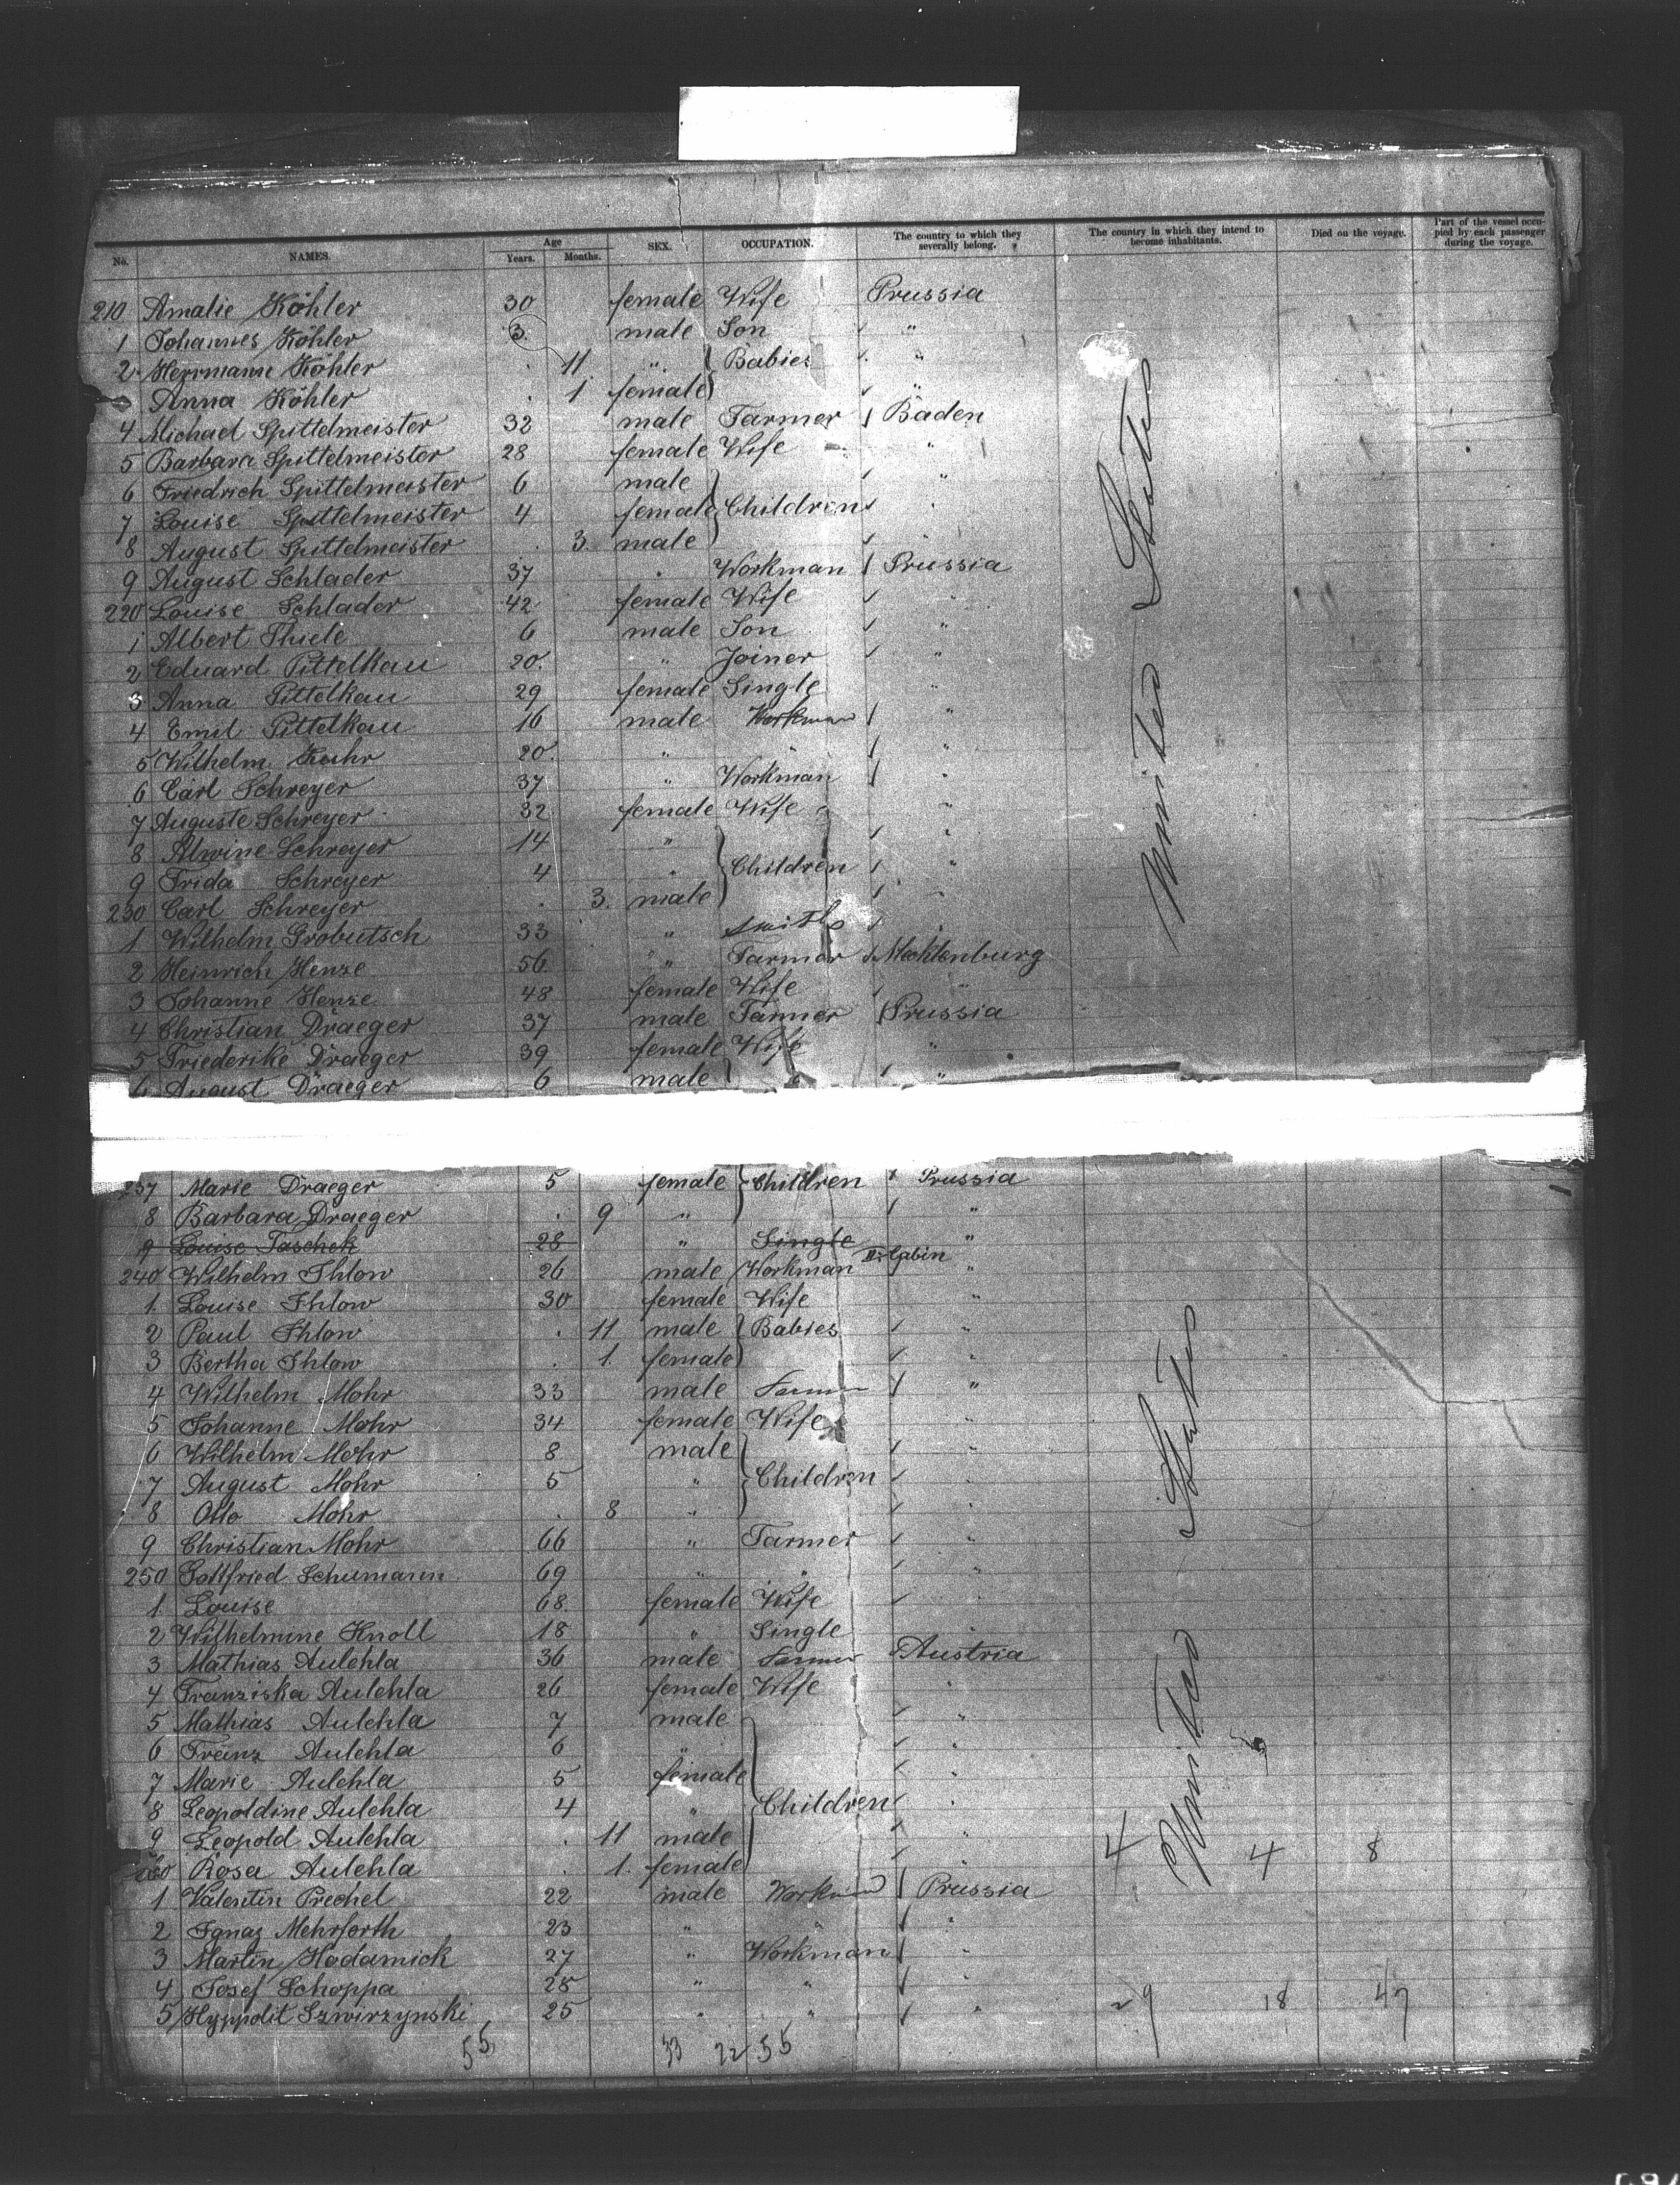 No. NAMES. Age Years. Months. SEX. OCCUPATION. The country to which they severally belong. The country in which they intend to become inhabitants. Died on the voyage. Part of the vessel occupied by each passenger during the voyage.
210 Amalie Köhler 30 female Wife Prussia
1 Johannes Köhler 3 male Son "
2 Herrmann Köhler 11 " Babies "
Anna Köhler 1 female "
4 Michael Spittelmeister 32 male Farmer Baden
5 Barbara Spittelmeister 28 female Wife "
6 Friedrich Spittelmeister 6 male "
7 Louise Spittelmeister 4 female Children "
8 August Spittelmeister 3 male
9 August Schlader 37 Workman Prussia
220 Louise Schlader 42 female Wife "
1 Albert Thiele 6 male Son "
2 Eduard Pittelkau 20 " Joiner "
3 Anna Pittelkau 29 female Single "
4 Emil Pittelkau 16 male Workman "
5 Wilhelm Kuhr 20 " "
6 Carl Schreyer 37 " Workman "
7 Auguste Schreyer 32 female Wife "
8 Alwine Schreyer 14 " "
9 Frida Schreyer 4 " Children "
230 Carl Schreyer 3 male "
1 Wilhelm Grobutsch 33 " Smith "
2 Heinrich Henze 56 " Farmer Mecklenburg
3 Johanne Henze 48 female Wife "
4 Christian Draeger 37 male Farmer Prussia
5 Friederike Draeger 39 female Wife "
6 August Draeger 6 male "
237 Marie Draeger 5 female Children Prussia
8 Barbara Draeger 9 " "
9 Louise Taschek 28 " Single "
240 Wilhelm Ihlow 26 male Workman II. Cabin "
1 Louise Ihlow 30 female Wife "
2 Paul Ihlow 11 male Babies "
3 Bertha Ihlow 1 female "
4 Wilhelm Mohr 33 male Farmer "
5 Johanne Mohr 34 female Wife "
6 Wilhelm Mohr 8 male "
7 August Mohr 5 " Children "
8 Otto Mohr 8 " "
9 Christian Mohr 66 " Farmer "
250 Gottfried Schumann 69 " " "
1 Louise 68 female Wife "
2 Wilhelmine Knoll 18 " Single "
3 Mathias Aulehla 36 male Farmer Austria
4 Franziska Aulehla 26 female Wife "
5 Mathias Aulehla 7 male "
6 Franz Aulehla 6 " "
7 Marie Aulehla 5 female "
8 Leopoldine Aulehla 4 " Children "
9 Leopold Aulehla 11 male " 4 4 8
260 Rosa Aulehla 1 female "
1 Valentin Prechel 22 male Workman Prussia
2 Ignaz Mehrforth 23 " " "
3 Martin Hodamick 27 " Workman "
4 Josef Schoppa 28 " " "
5 Hyppolit Szwirzynski 25 " " " 29 18 47
55 33 22 55
United States
United States